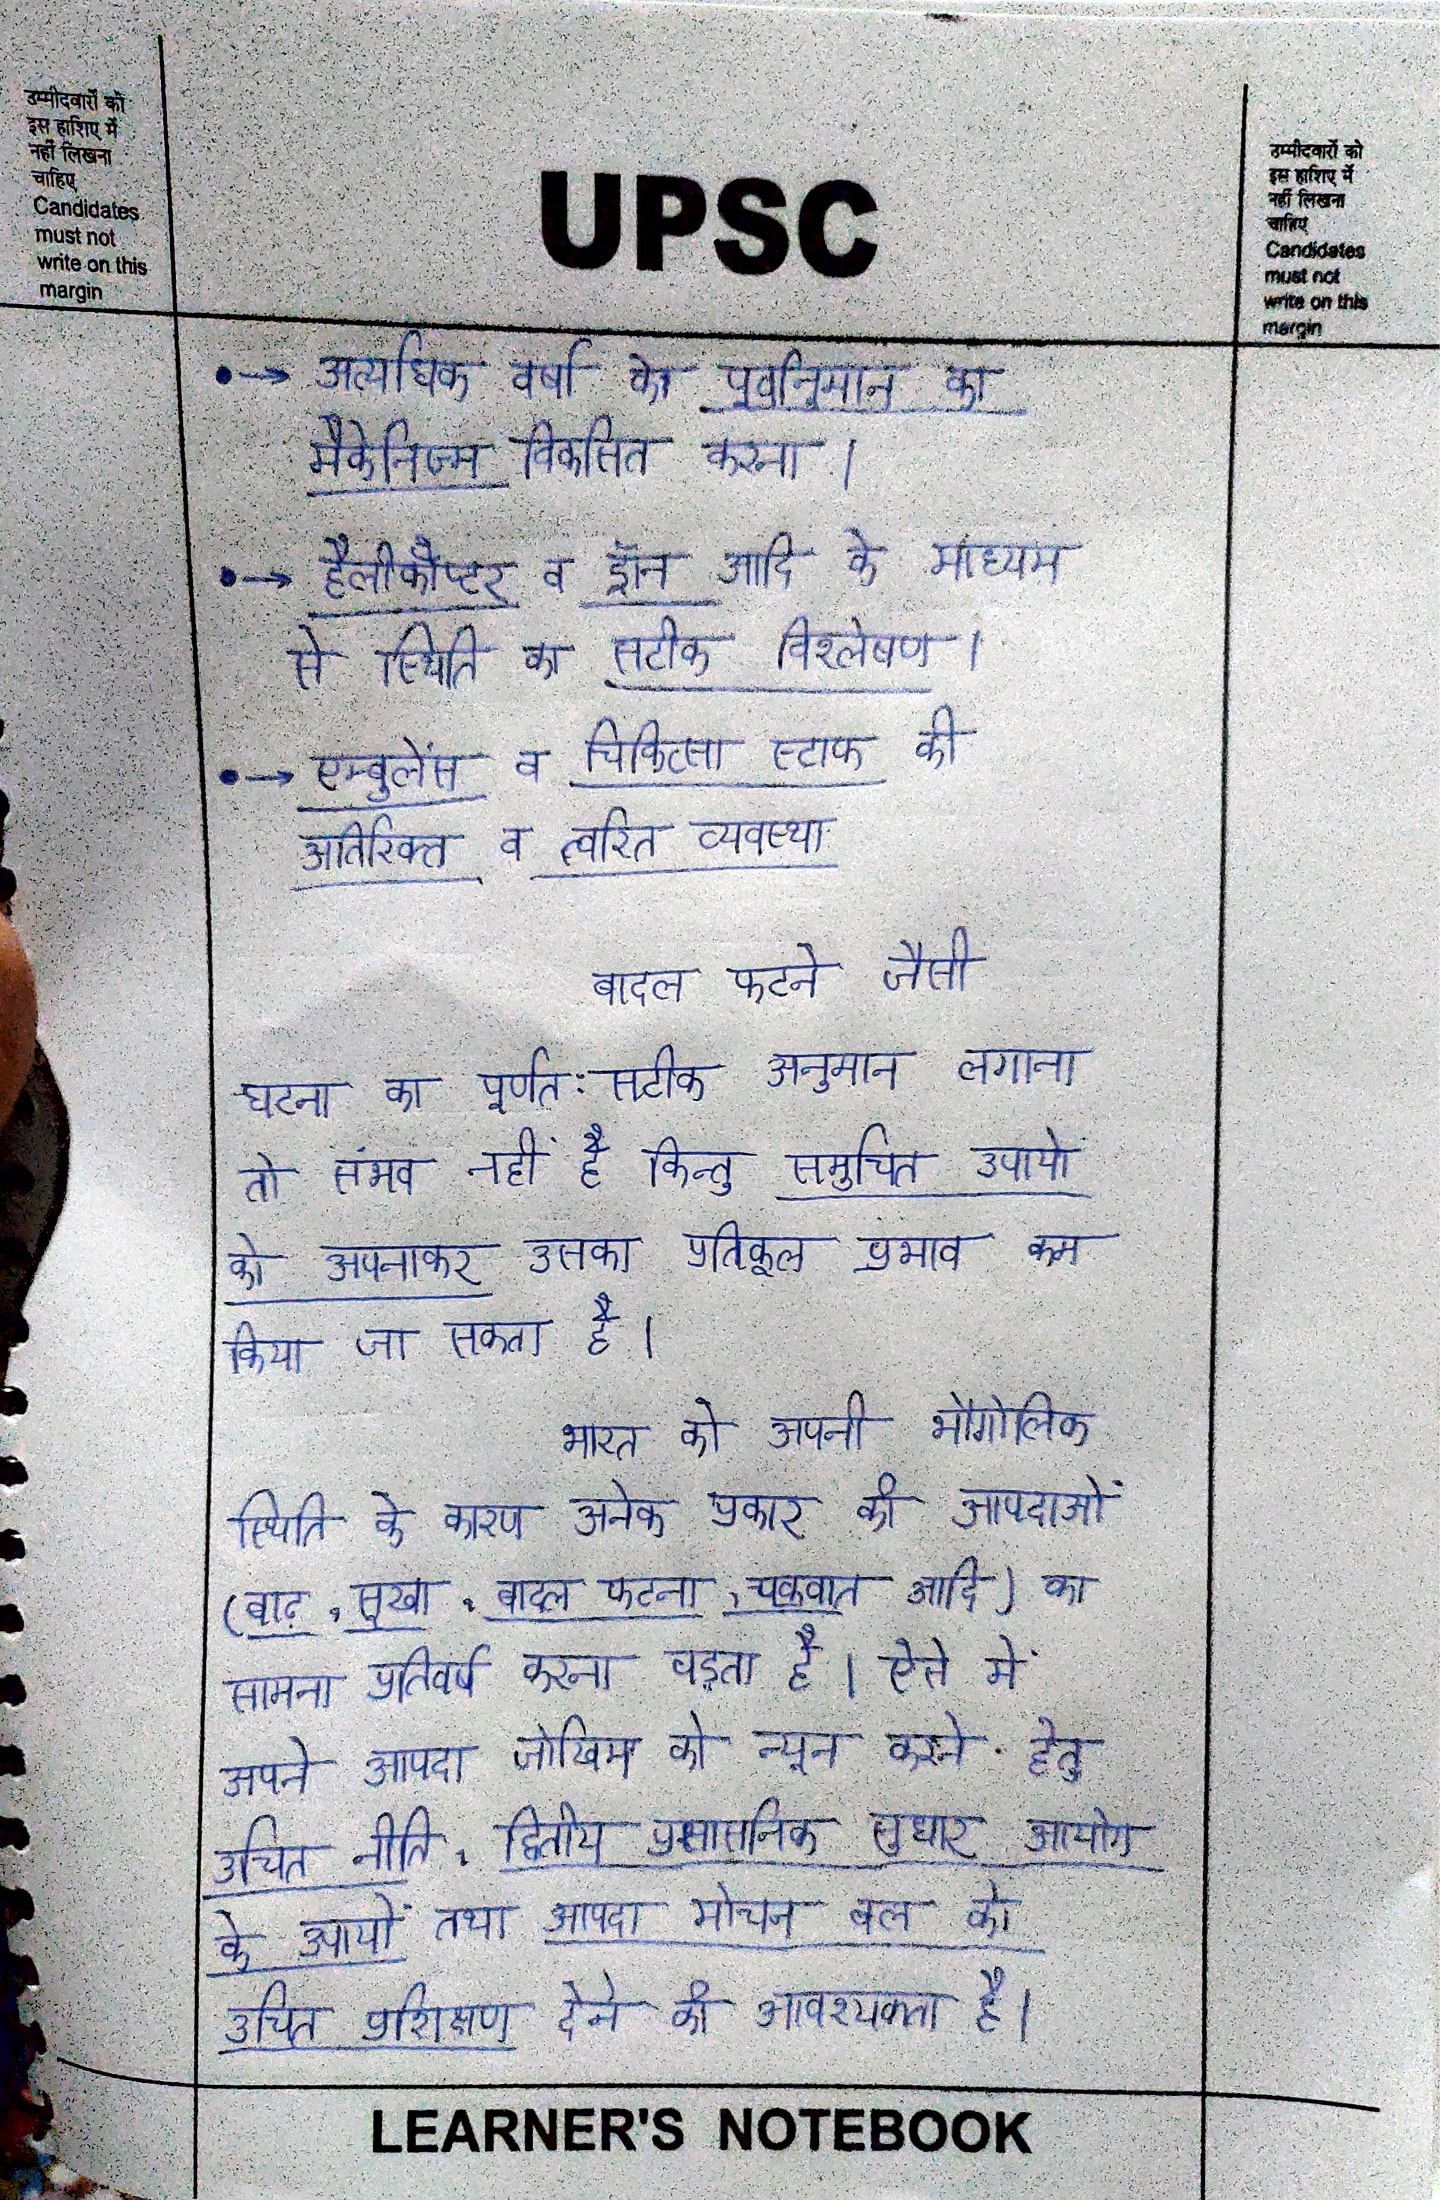 उम्मीदवारों को
इस हाशिए में
नहीं लिखना
चाहिए
Candidates
must not
write on this
margin
UPSC
उम्मीदवारों को
इस हाशिए में
नहीं लिखना
चाहिए
Candidates
must not
write on this
margin
•→ अत्यधिक वर्षा के पूर्वानुमान का
मैकेनिज्म विकसित करना।
•→ हैलीकॉप्टर व ड्रॉन आदि के माध्यम
से स्थिति का सटीक विश्लेषण।
•→ एम्बुलेंस व चिकित्सा स्टाफ की
अतिरिक्त व त्वरित व्यवस्था
बादल फटने जैसी
घटना का पूर्णत: सटीक अनुमान लगाना
तो संभव नहीं है किन्तु समुचित उपायो
को अपनाकर उसका प्रतिकूल प्रभाव कम
किया जा सकता है।
भारत को अपनी भौगोलिक
स्थिति के कारण अनेक प्रकार की आपदाओं
(बाढ़, सूखा, बादल फटना, चक्रवात आदि) का
सामना प्रतिवर्ष करना पड़ता है। ऐसे में
अपने आपदा जोखिम को न्यून करने हेतु
उचित नीति, द्वितीय प्रसासनिक सुधार आयोग
के उपायों तथा आपदा मोचन बल को
उचित प्रशिक्षण देने की आवश्यकता है।
LEARNER'S NOTEBOOK